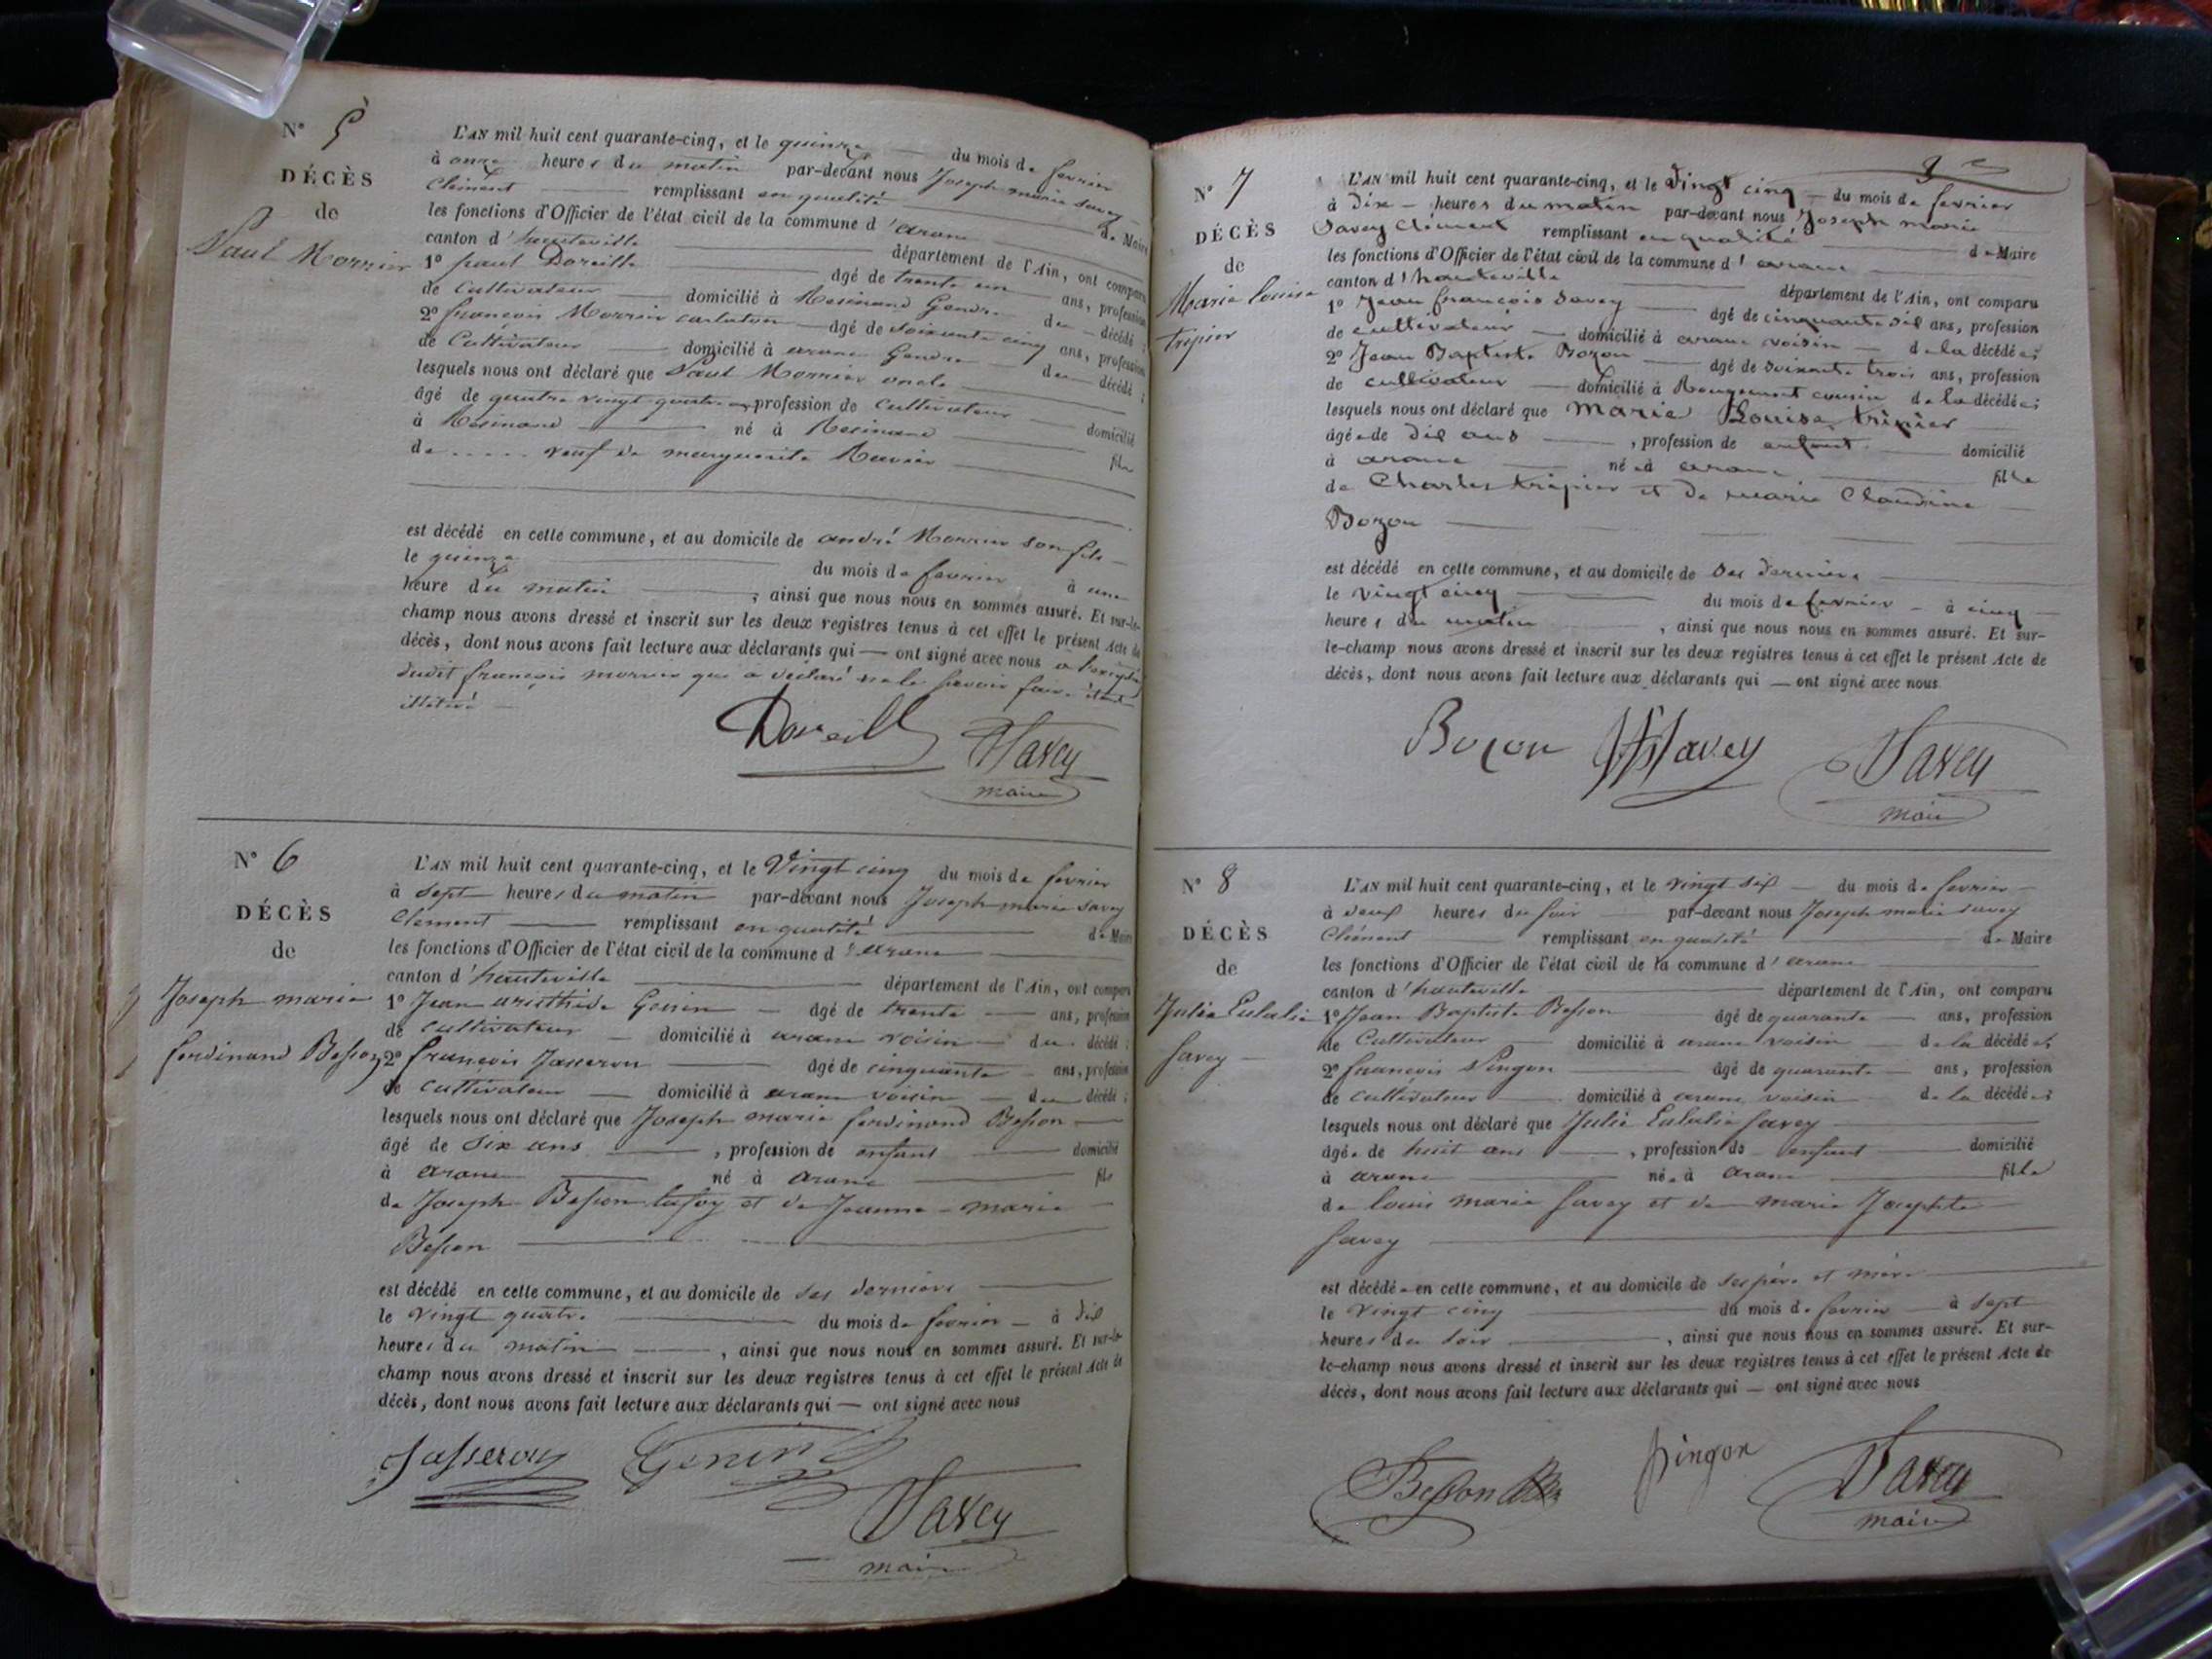 N° 5
DÉCÈS
de
Paul Morrier
L'AN mil huit cent quarante-cinq, et le quinze du mois de fevrier
à onze heures du matin par-devant nous Joseph marie savey
Clément remplissant en qualité de Maire
les fonctions d'Officier de l'état civil de la commune d'arane
canton d'hauteville département de l'Ain, ont comparu
1° paul Doreille âgé de trente un ans, profession
de Cultivateur domicilié à Resinand Gendre du décédé ;
2° francois Morrier âgé de soixante cinq ans, profession
de Cultivateur domicilié à arane Gendre du décédé ;
lesquels nous ont déclaré que Paul Morrier oncle
âgé de quatre vingt quatre profession de Cultivateur domicilié
à Resinand né à Resinand fils
de ..... veuf de marguerite Ravier
est décédé en cette commune, et au domicile de andré Morrier son fils
le quinze du mois de fevrier à une
heure du matin, ainsi que nous nous en sommes assuré. Et sur-le-
champ nous avons dressé et inscrit sur les deux registres tenus à cet effet le présent Acte de
décès, dont nous avons fait lecture aux déclarants qui — ont signé avec nous
dudit françois morrier qui a déclaré ne le savoir faire étant
illétéré
Doreille Savey
maire
N° 6
DÉCÈS
de
Joseph marie
ferdinand Besson
L'AN mil huit cent quarante-cinq, et le Vingt cinq du mois de fevrier
à sept heures du matin par-devant nous Joseph marie savey
Clement remplissant en qualité de Maire
les fonctions d'Officier de l'état civil de la commune d'arane
canton d'hauteville département de l'Ain, ont comparu
1° Jean aristhide Genin âgé de trente ans, profession
de cultivateur domicilié à arane voisin du décédé ;
2° francois Jasseron âgé de cinquante ans, profession
de cultivateur domicilié à arane voisin du décédé ;
lesquels nous ont déclaré que Joseph marie ferdinand Besson
âgé de six ans, profession de enfant domicilié
à arane né à arane fils
de Joseph Besson et de Jeanne-marie
Besson
est décédé en cette commune, et au domicile de ses derniers
le vingt quatre du mois de fevrier à dix
heures du matin, ainsi que nous nous en sommes assuré. Et sur-le-
champ nous avons dressé et inscrit sur les deux registres tenus à cet effet le présent Acte de
décès, dont nous avons fait lecture aux déclarants qui — ont signé avec nous
Jasseron Genin
Savey
maire
N° 7
DÉCÈS
de
Marie louise
tripier
L'AN mil huit cent quarante-cinq, et le Vingt cinq du mois de fevrier
à Dix heures du matin par-devant nous Joseph marie
Savey Clément remplissant en qualité de Maire
les fonctions d'Officier de l'état civil de la commune d'arane
canton d'hauteville département de l'Ain, ont comparu
1° Jean francois Savey âgé de cinquante six ans, profession
de cultivateur domicilié à arane voisin de la décédée ;
2° Jean Baptiste Bozon âgé de soixante trois ans, profession
de cultivateur domicilié à Rougemont cousin de la décédée ;
lesquels nous ont déclaré que Marie Louise tripier
âgée de dix ans, profession de enfant domicilié
à arane née à arane fille
de Charles tripier et de marie Claudine
Bozon
est décédé en cette commune, et au domicile de ses derniers
le vingt cinq du mois de fevrier à cinq
heures du matin, ainsi que nous nous en sommes assuré. Et sur-
le-champ nous avons dressé et inscrit sur les deux registres tenus à cet effet le présent Acte de
décès, dont nous avons fait lecture aux déclarants qui — ont signé avec nous
Bozon Savey Savey
maire
N° 8
DÉCÈS
de
Julie Eulalie
Savey
L'AN mil huit cent quarante-cinq, et le vingt six du mois de fevrier
à deux heures du soir par-devant nous Joseph marie savey
Clément remplissant en qualité de Maire
les fonctions d'Officier de l'état civil de la commune d'arane
canton d'hauteville département de l'Ain, ont comparu
1° Jean Baptiste Besson âgé de quarante ans, profession
de Cultivateur domicilié à arane voisin de la décédée ;
2° francois Pingon âgé de quarante ans, profession
de cultivateur domicilié à arane voisin de la décédée ;
lesquels nous ont déclaré que Julie Eulalie Savey
âgée de huit ans, profession de enfant domicilié
à arane née à arane fille
de louis marie Savey et de marie Josephte
Savey
est décédée en cette commune, et au domicile de ses père et mère
le vingt cinq du mois de fevrier à sept
heures du soir, ainsi que nous nous en sommes assuré. Et sur-
le-champ nous avons dressé et inscrit sur les deux registres tenus à cet effet le présent Acte de
décès, dont nous avons fait lecture aux déclarants qui — ont signé avec nous
Besson pingon Savey
maire